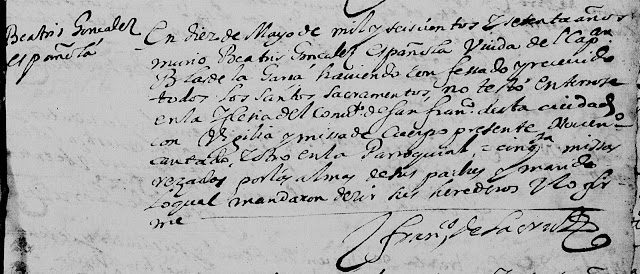 Beatris Gonzalez
española
En diez de Mayo de mil y seiscientos y setenta años
murio Beatris Gonzalez española Viuda del Capan
Blas de la Garça haviendo confessado y recevido
todos los santos sacramentos, no testó enterrose
en la Iglesia del Convto de San Franco desta ciudad
con Vigilia y missa de Cuerpo presente Noveno
cantado, y otro en la Parroquial = cinqta missas
rezadas por los almas de sus padres y marido
lo qual mandaron dezir sus herederos y lo fir
me
Franco de la Cruz